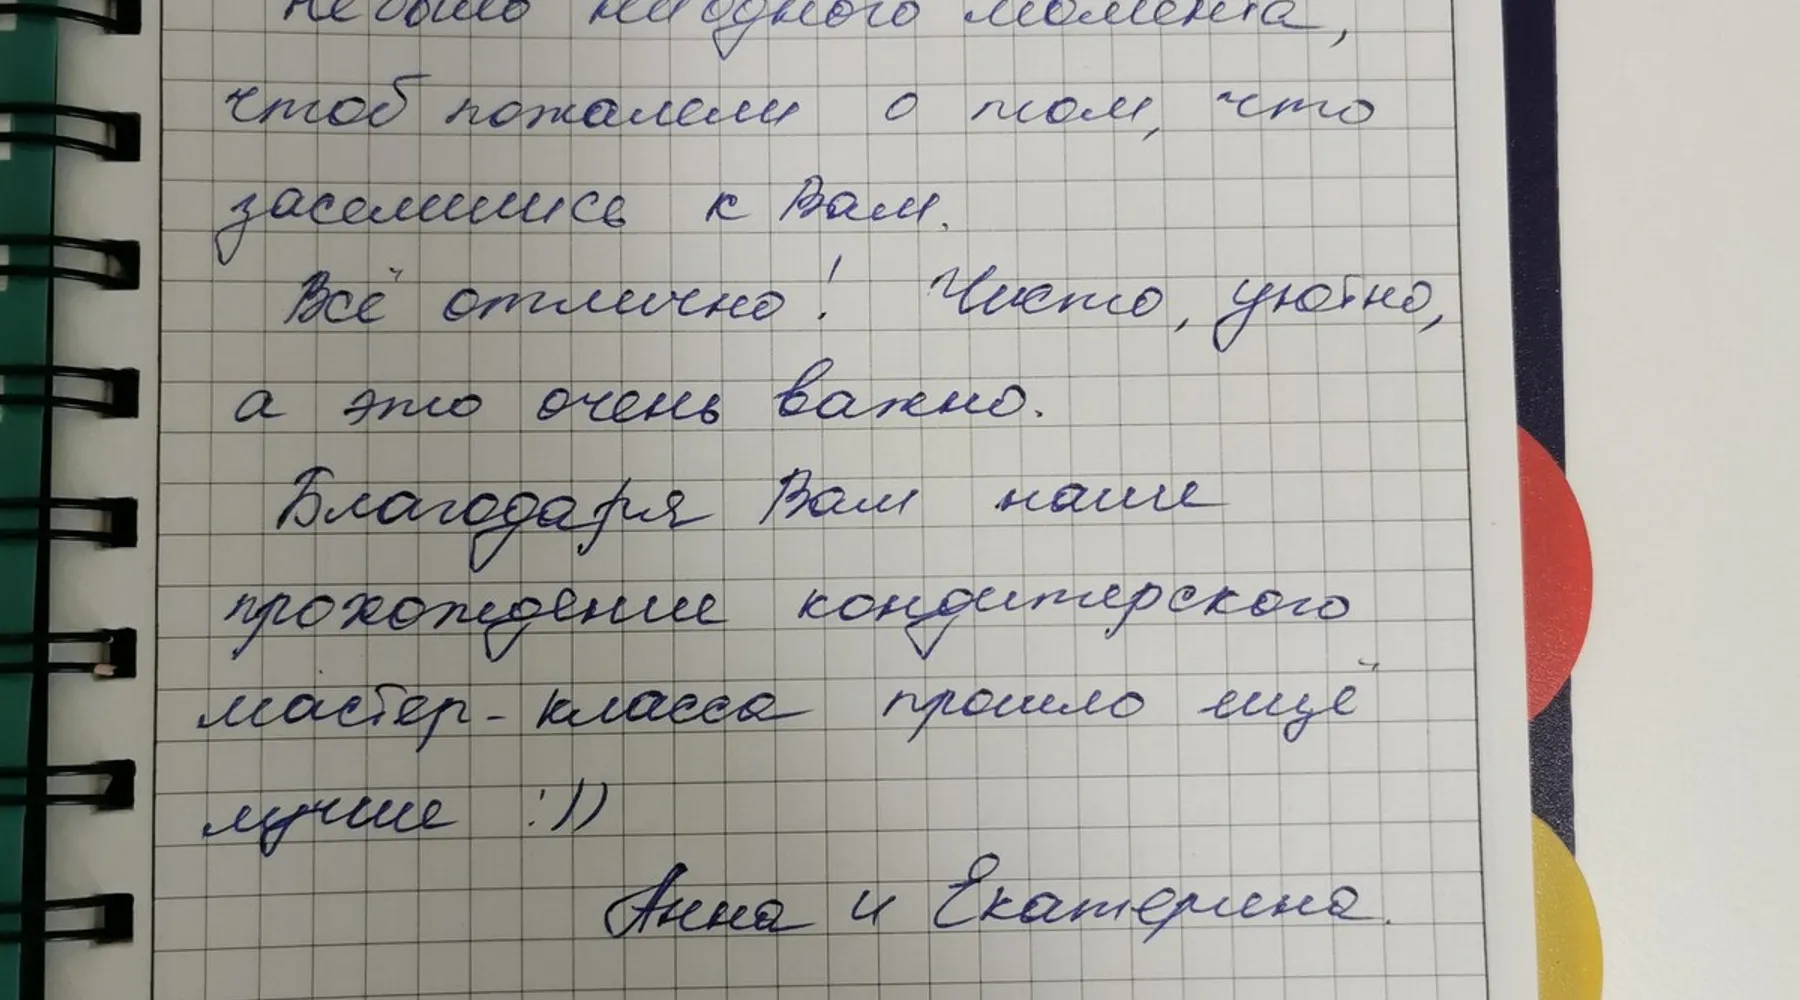 не было ни одного момента,
чтоб пожалели о том, что
заселились к Вам.
Всё отлично! Чисто, уютно,
а это очень важно.
Благодаря Вам наше
прохождение кондитерского
мастер-класса прошло ещё
лучше :))
Анна и Екатерина.